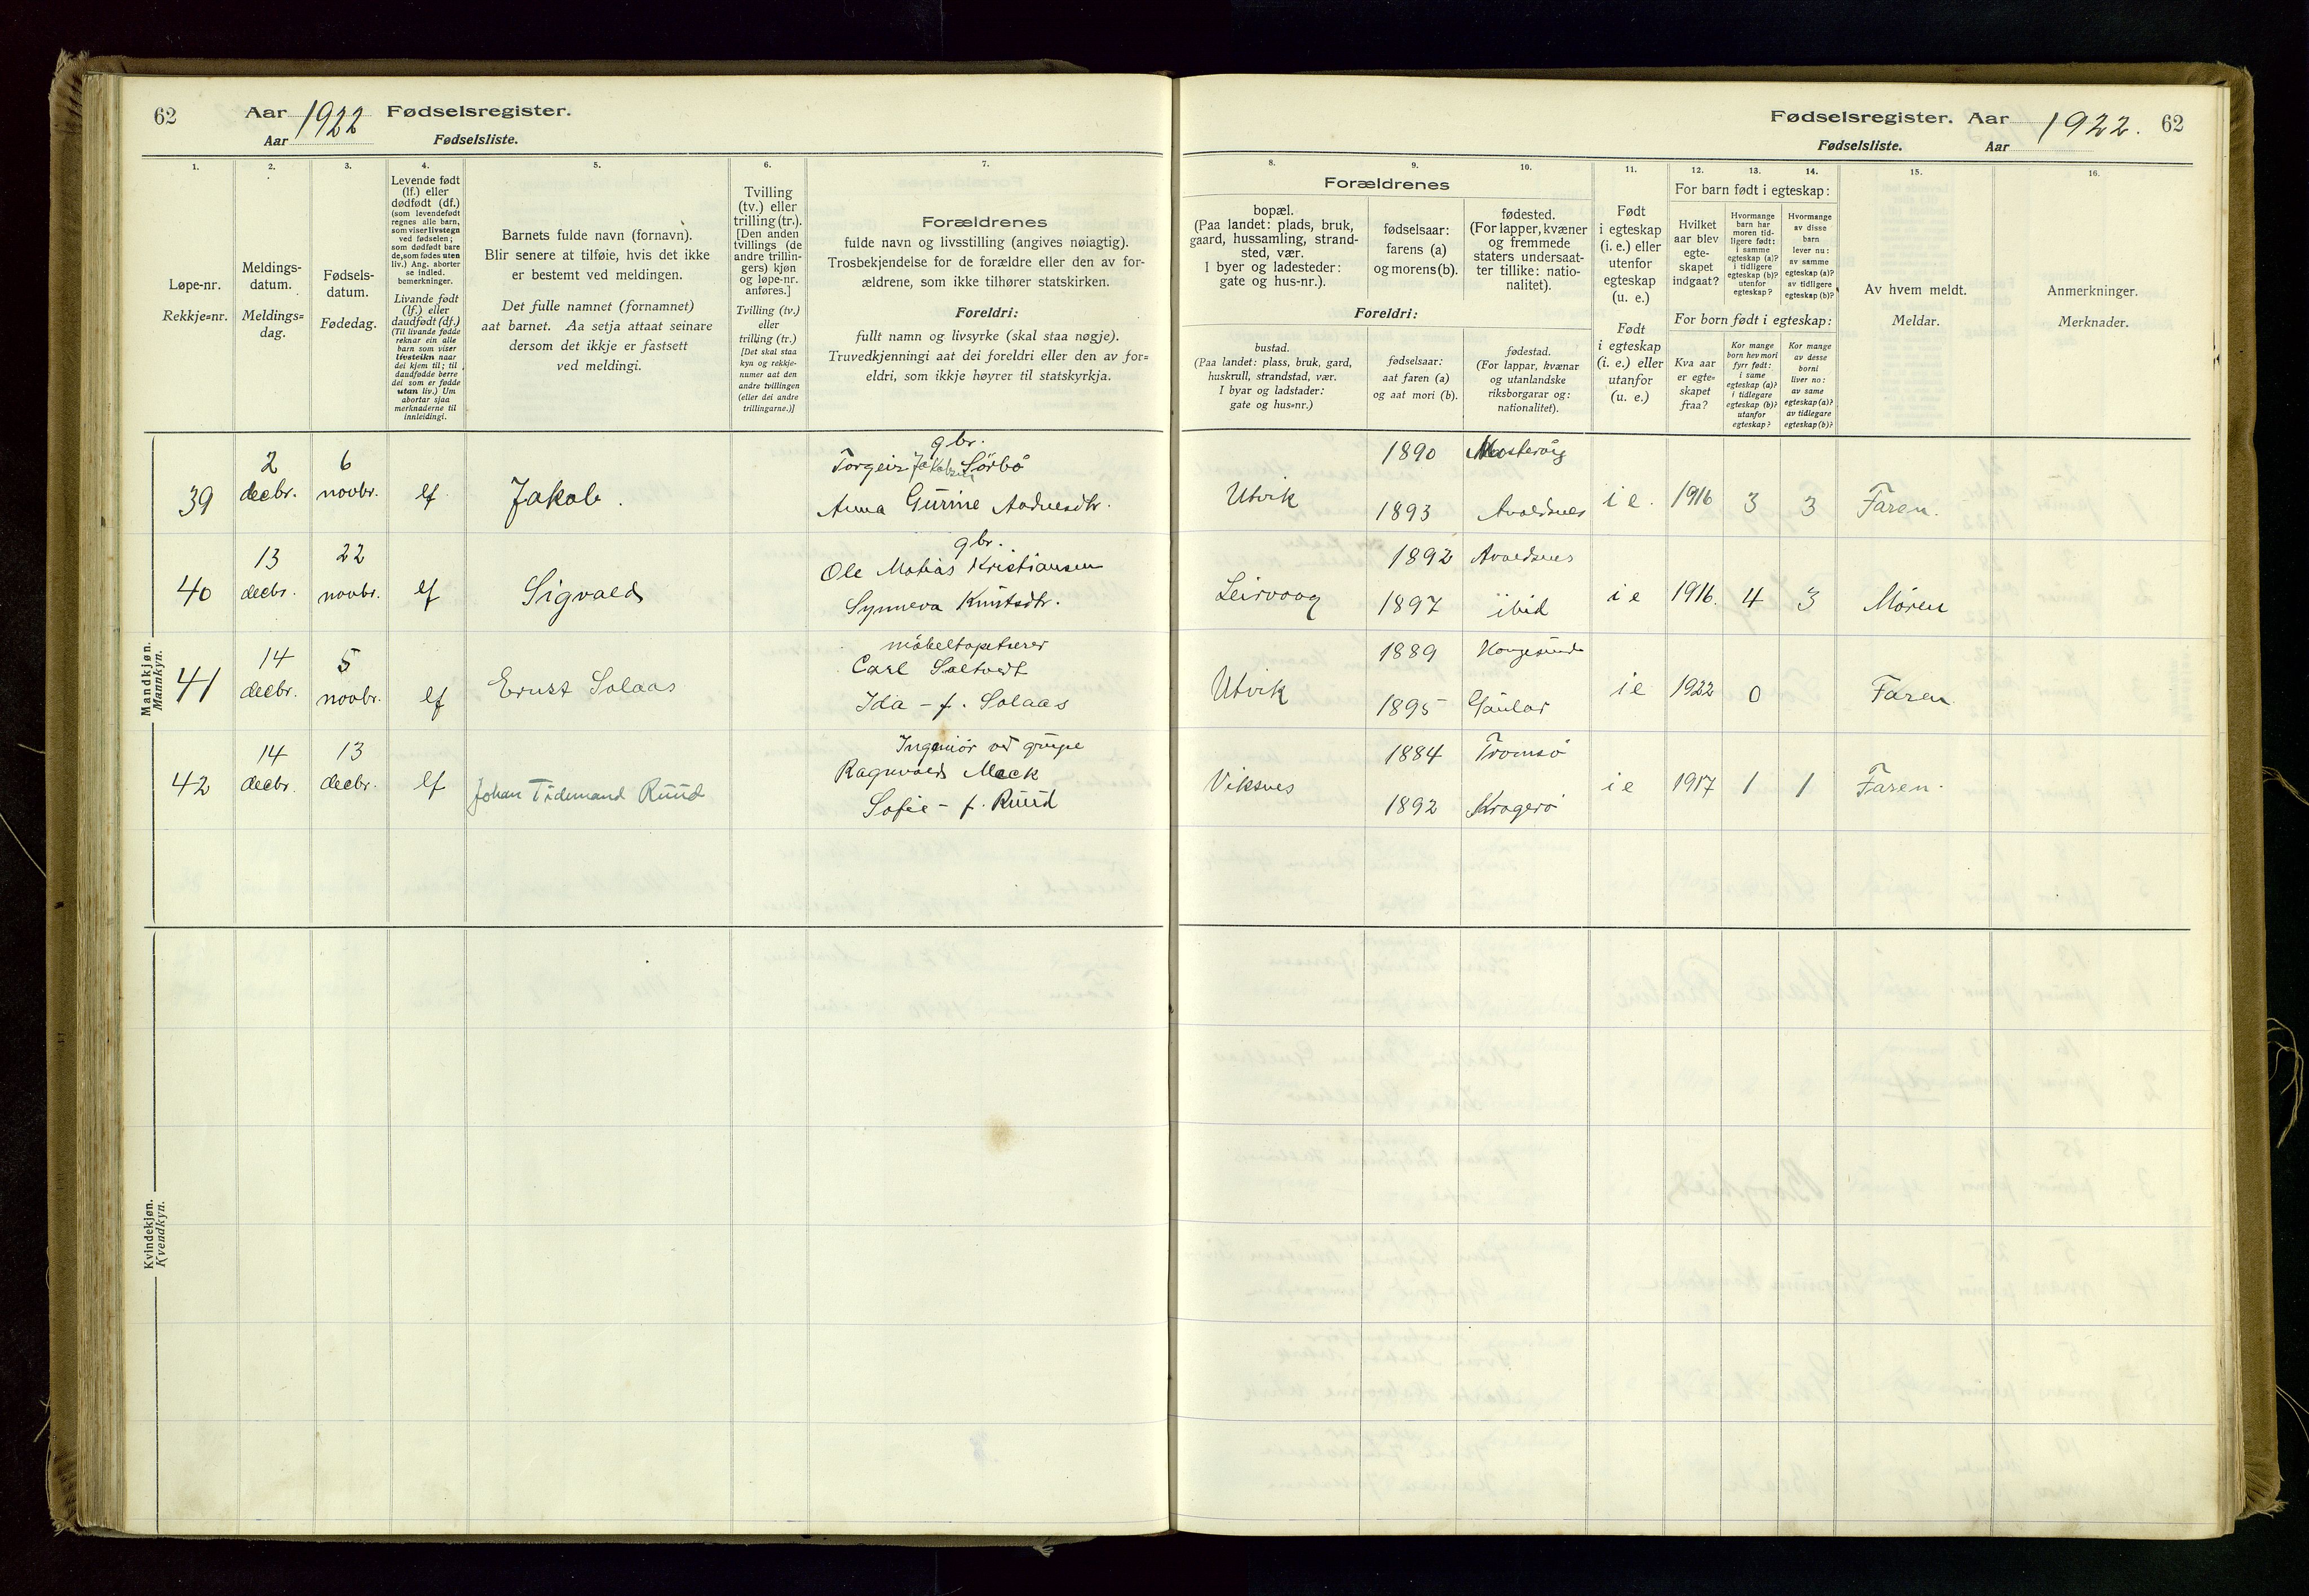 62
Aar 1922 Fødselsregister.
Aar Fødselsliste.
1.
Løpe-nr.
Rekkje=nr.
2.
Meldings-
datum.
Meldings=
dag.
3.
Fødsels-
datum.
Fødedag.
4.
Levende født
(lf.) eller
dødfødt (df.)
(som levendefødt
regnes alle barn,
som viser livstegn
ved fødselen;
som dødfødt bare
de, som fødes uten
liv.) Ang. aborter
se indled.
bemerkninger.
Livande født
(lf.) eller
daudfødt (df.)
(Til livande fødde
reknar ein alle
barn som viser
livsteikn naar
dei kjem til; til
daudfødde berre
dei som er fødde
utan liv.) Um
abortar sjaa
merknaderne til
innleidingi.
5.
Barnets fulde navn (fornavn).
Blir senere at tilføie, hvis det ikke
er bestemt ved meldingen.
Det fulle namnet (fornamnet)
aat barnet. Aa setja attaat seinare
dersom det ikkje er fastsett
ved meldingi.
6.
Tvilling
(tv.) eller
trilling (tr.).
[Den anden
tvillings (de
andre trillin-
gers) kjøn
og løpe-nr.
anføres.]
Tvilling (tv.)
eller
trilling (tr.)
[Det skal staa
kyn og rekkje-
numer aat den
andre tvillingen
(eller dei andre
trillingarne.)]
7.
Forældrenes
fulde navn og livsstilling (angives nøiagtig).
Trosbekjendelse for de forældre eller den av for-
ældrene, som ikke tilhører statskirken.
Foreldri:
fullt namn og livsyrke (skal staa nøgje).
Truvedkjenningi aat dei foreldri eller den av for=
eldri, som ikkje høyrer til statskyrkja.
Mandkjøn.
Mannkyn.
39
2
decbr.
6
novbr.
lf
Jakob.
gbr.
Torgeir Jakobsen Sörbö
Anna Gurine Aadnesdtr.
40
13
decbr.
22
novbr.
lf
Sigvald
gbr.
Ole Matias Kristiansen
Synneva Knutsdtr.
41
14
decbr.
5
novbr.
lf
Ernst Solaas
möbeltapetserer
Carl Saltvedt
Ida - f. Solaas
42
14
decbr.
13
decbr.
lf
Johan Tidemand Ruud
Ingeniör
Ragnvald Mack
Sofie - f. Ruud
Kvindekjøn.
Kvendkyn.
Fødselsregister. Aar 1922. 62
Fødselsliste. Aar
8.
Forældrenes
bopæl.
(Paa landet: plads, bruk,
gaard, hussamling, strand-
sted, vær.
I byer og ladesteder:
gate og hus-nr.).
Foreldri:
bustad.
(Paa landet: plass, bruk, gard,
huskrull, strandstad, vær.
I byar og ladstader:
gate og hus=nr.)
9.
fødselsaar:
farens (a)
og morens (b).
fødselsaar:
aat faren (a)
og aat mori (b).
10.
fødested.
(For lapper, kvæner
og fremmede
staters undersaat-
ter tillike: natio-
nalitet).
fødestad.
(For lappar, kvænar
og utanlandske
riksborgarar og:
nationalitet).
11.
Født
i egteskap
(i. e.) eller
utenfor
egteskap
(u. e.)
Født
i egteskap
(i. e.) eller
utanfor
(u. e.)
12.
13.
14.
For barn født i egteskap:
Hvilket
aar blev
egte-
skapet
indgaat?
Hvormange
barn har
moren tid-
ligere født:
i samme
egteskap (a)?
i tidligere
egteskap (b)?
utenfor
egteskap?
Hvormange
av disse
barn
lever nu:
av samme
egteskap (a)?
av tidligere
egteskap (b)?
For born født i egteskap:
Kva aar
er egte=
skapet
fraa?
Kor mange
born hev mori
fyrr født:
i same
egteskap (a)?
i tidlegare
egteskap (b)?
utanfor
egteskap?
Kor mange
av desse
borni
liver no:
av same
egteskap (a)?
av tidlegare
egteskap (b)?
15.
Av hvem meldt.
Meldar.
16.
Anmerkninger.
Merknader.
Utvik
1890
1893
Mosteröig
Avaldsnes
i e.
1916
3
3
Faren.
Leirvaag
1892
1897
Avaldsnes
ibid
i e
1916.
4
3
Moren
Utvik
1889
1895
Haugesund
Gaular
i e
1922
0
Faren
Viksnes
1884
1892
Tromsö
Kragerö
i e
1917
1
1
Faren.